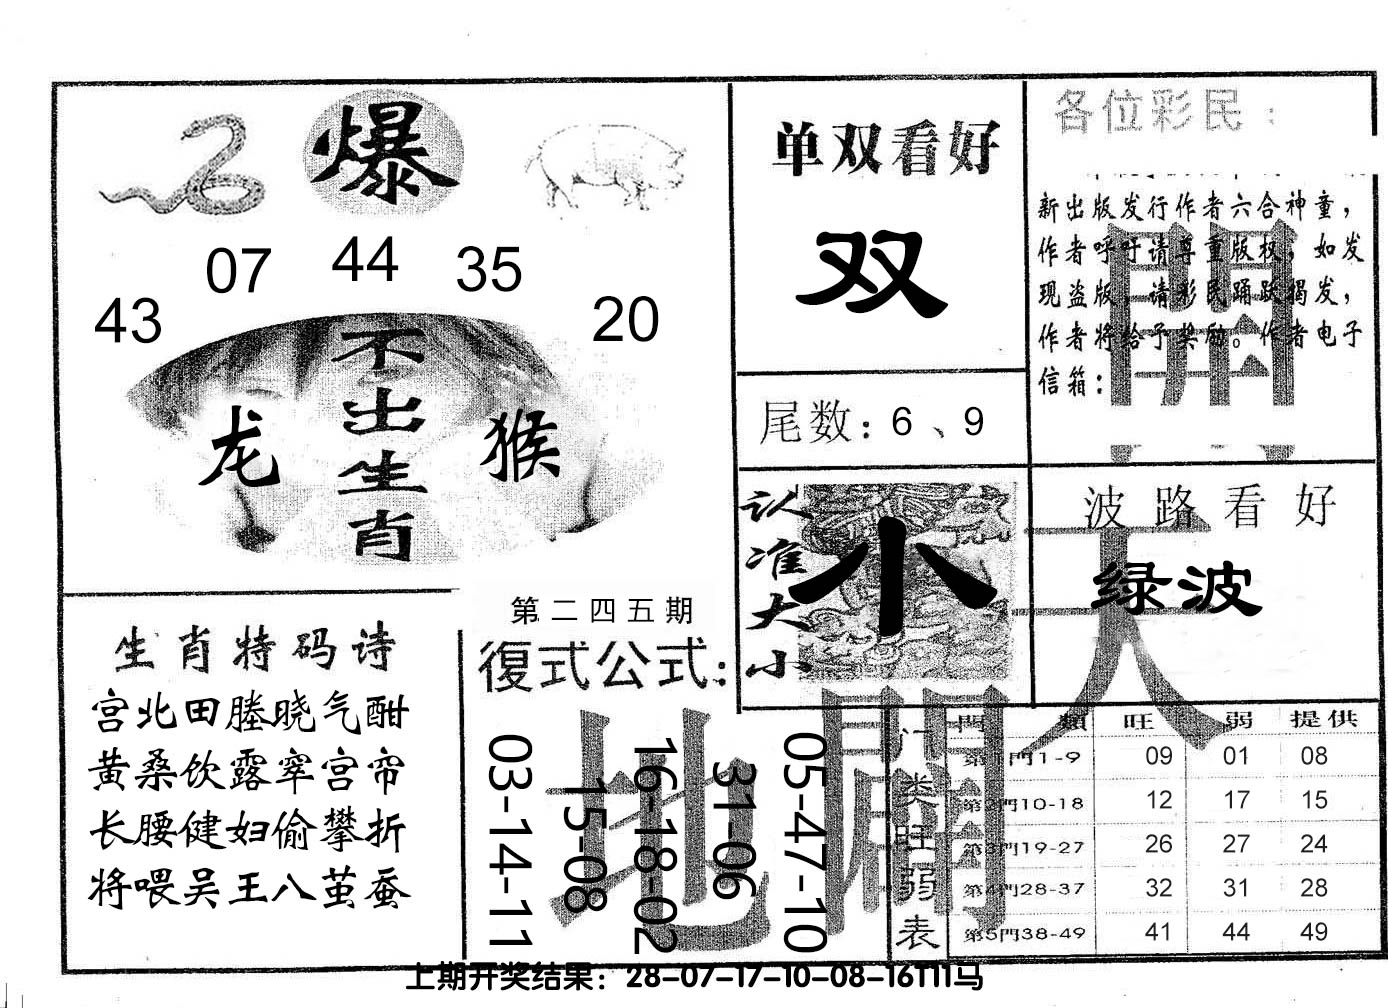 爆
07 44 35
43 20
不出生肖
龙 猴
单双看好
双
尾数：6、9
各位彩民：
新出版发行作者六合神童，
作者呼吁请尊重版权，如发
现盗版，请彩民踊跃揭发，
作者将给予奖励。作者电子
信箱：
開
认准大小
小
波路看好
绿波
天
生肖特码诗
宫北田塍晓气酣
黄桑饮露窣宫帘
长腰健妇偷攀折
将喂吴王八茧蚕
第二四五期
復式公式：
03-14-11
15-08
16-18-02
31-06
05-47-10
地
門类旺弱表
門類 旺 弱 提供
第1門1-9 09 01 08
第2門10-18 12 17 15
第3門19-27 26 27 24
第4門28-37 32 31 28
第5門38-49 41 44 49
上期开奖结果：28-07-17-10-08-16T11马